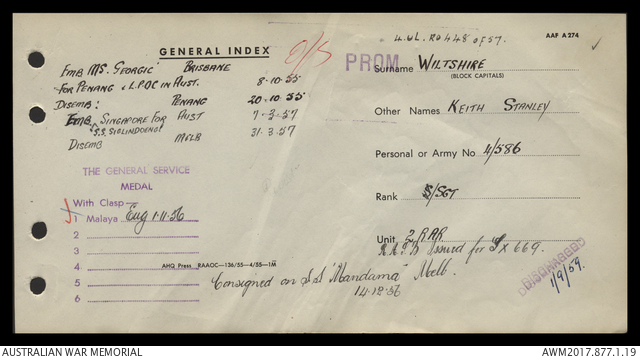 GENERAL INDEX
O/S
4. UL. R0448 of 57.
AAF A274
EMB MS. GEORGIC BRISBANE
FOR PENANG & L.POC IN AUST. 8·10·55
DISEMB: PENANG 20·10·55
EMB. SINGAPORE FOR AUST 7·3·57
S.S. SIBLINDOENG
DISEMB MELB 31·3·57
THE GENERAL SERVICE
MEDAL
With Clasp
1 Malaya Eng 1·11·56
2
3
4
5
6
AHQ Press RAAOC—136/55—4/55—1M
PROM
Surname WILTSHIRE
(BLOCK CAPITALS)
Other Names KEITH STANLEY
Personal or Army No 4/586
Rank S/SGT
Unit 2 RAR
Issued for 669.
Consigned on S.S "Mandama" Melb.
14·12·56
DISCHARGED
1/9/59.
AUSTRALIAN WAR MEMORIAL
AWM2017.877.1.19